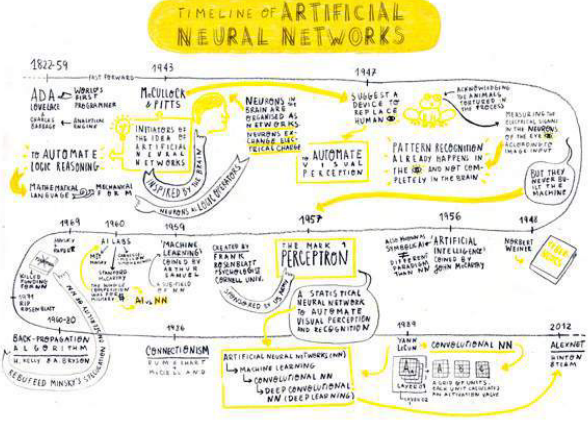 TIMELINE OF ARTIFICIAL
NEURAL NETWORKS
1822-59
FAST FORWARD
1943
1947
ADA
LOVELACE
&
CHARLES
BABBAGE
WORLD'S
FIRST
PROGRAMMER
ANALYTICAL
ENGINE
TO AUTOMATE
LOGIC REASONING
MATHEMATICAL
LANGUAGE
MECHANICAL
FORM
McCULLOCK
& PITTS
INITIATORS OF
THE IDEA OF
ARTIFICIAL
NEURAL
NETWORKS
INSPIRED BY THE BRAIN
NEURONS AS LOGIC OPERATORS
NEURONS IN
BRAIN ARE
ORGANISED AS
NETWORKS
NEURONS EX-
CHANGE ELEC-
TRICAL CHARGE
SUGGEST A
DEVICE TO
REPLACE
HUMAN
TO AUTOMATE
VISUAL
PERCEPTION
ACKNOWLEDGING
THE ANIMALS
TORTURED IN
THE PROCESS
MEASURING THE
ELECTRICAL SIGNALS
IN THE NEURONS
OF THE EYE
ACCORDING TO
IMAGE INPUT
PATTERN RECOGNITION
ALREADY HAPPENS IN
THE AND NOT COM-
PLETELY IN THE BRAIN
BUT THEY
NEVER BU-
ILT THE
MACHINE
1969
1960
1959
1957
1956
1948
MINSKY
&
PAPERT
KILLED
FUNDING
FOR NN
1971
RIP
ROSENBLATT
AI LABS
MIT
MINSKY
STANFORD
McCARTHY
AI vs. NN
"MACHINE
LEARNING"
COINED BY
ARTHUR
SAMUEL
A SUBFIELD
OF NN
CREATED BY
FRANK
ROSENBLATT
PSYCHOLOGIST
CORNELL UNIV.
SPONSORED BY US NAVY
THE MARK 1
PERCEPTRON
A STATISTICAL
NEURAL NETWORK
TO AUTOMATE
VISUAL PERCEPTION
AND RECOGNITION
ALSO KNOWN AS
SYMBOLIC AI
DIFFERENT
PARADIGM
THAN NN
"ARTIFICIAL
INTELLIGENCE"
COINED BY
JOHN McCARTHY
NORBERT
WIENER
CYBERNETICS
1960-70
BACK-PROPAGATION
ALGORITHM
H. KELLY & A. BRYSON
1986
CONNECTIONISM
RUMELHART &
McCLELLAND
ARTIFICIAL NEURAL NETWORKS (NN)
MACHINE LEARNING
CONVOLUTIONAL NN
DEEP CONVOLUTIONAL
NN (DEEP LEARNING)
1989
YANN
LECUN
CONVOLUTIONAL NN
LAYER 1
LAYER 2
A GRID OF UNITS.
EACH UNIT CALCULATES
AN ACTIVATION VALUE
2012
ALEXNET
HINTON
& TEAM